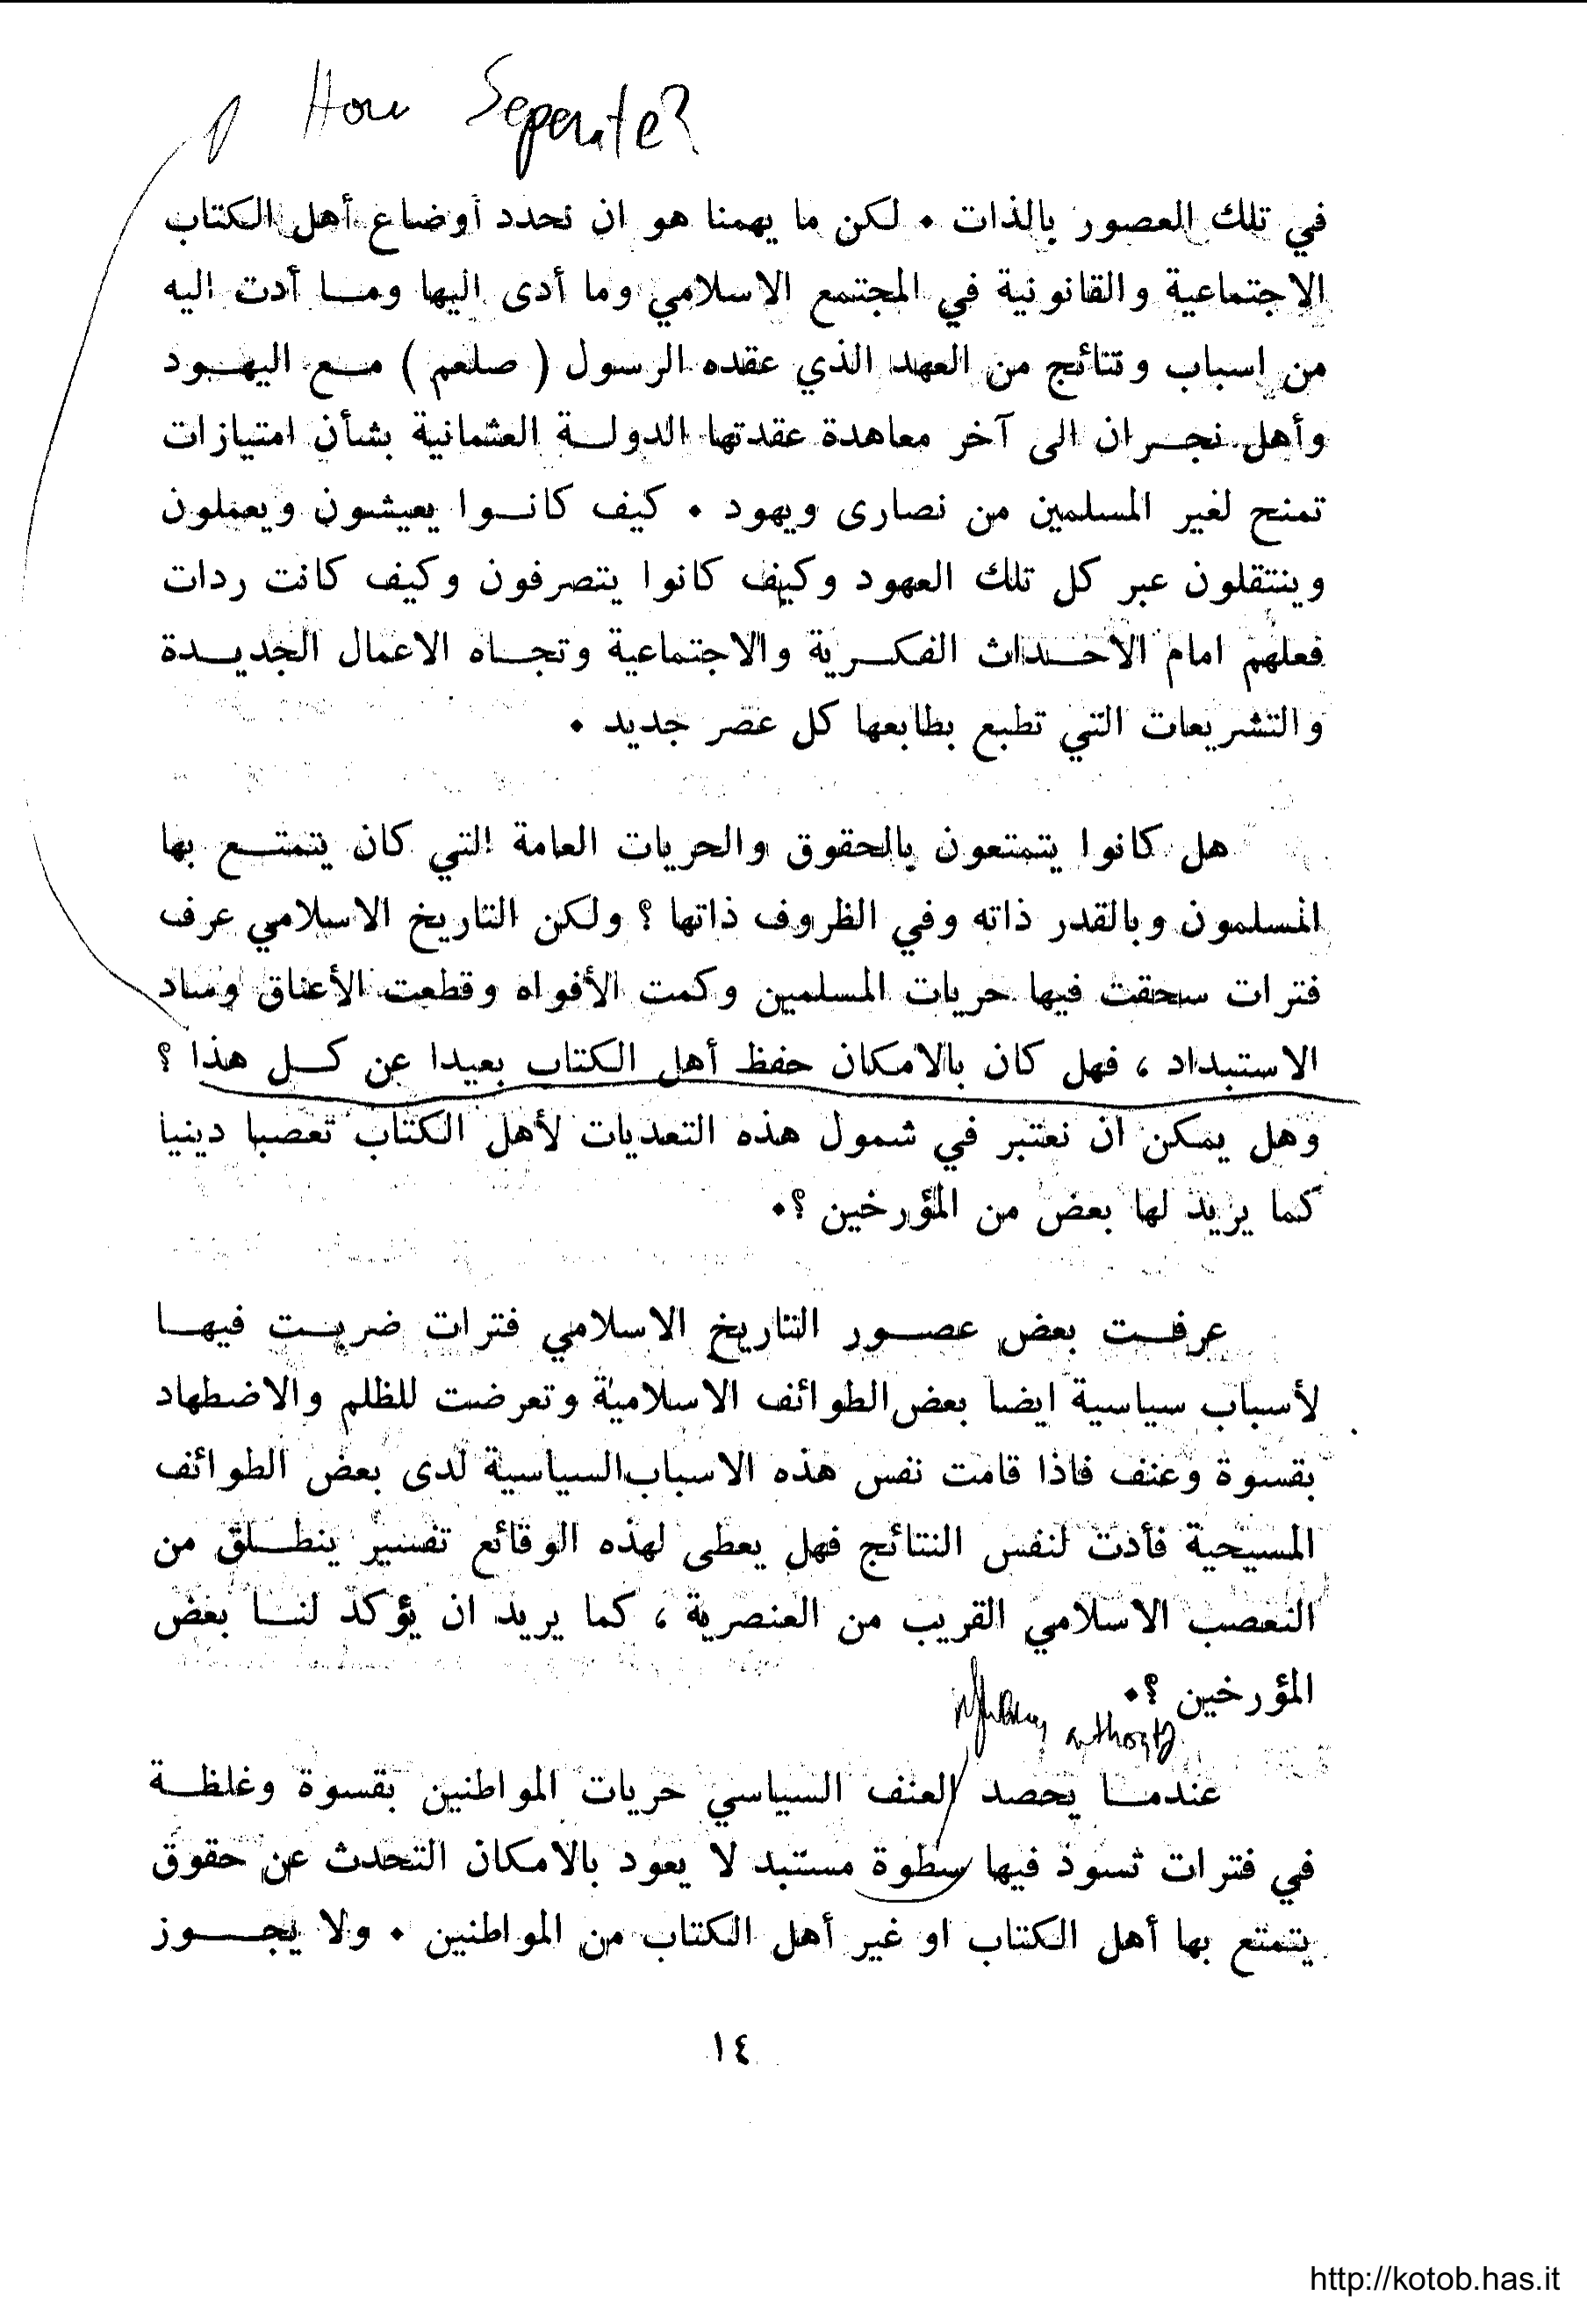 How Seperate?
في تلك العصور بالذات . لكن ما يهمنا هو ان نحدد أوضاع أهل الكتاب
الاجتماعية والقانونية في المجتمع الاسلامي وما أدى اليها ومــا أدت اليه
من اسباب ونتائج من العهد الذي عقده الرسول ( صلعم ) مــع اليهــود
وأهل نجــران الى آخر معاهدة عقدتها الدولــة العثمانية بشأن امتيازات
تمنح لغير المسلمين من نصارى ويهود . كيف كانــوا يعيشون ويعملون
وينتقلون عبر كل تلك العهود وكيف كانوا يتصرفون وكيف كانت ردات
فعلهم امام الاحــداث الفكــرية والاجتماعية وتجــاه الاعمال الجديــدة
والتشريعات التي تطبع بطابعها كل عصر جديد .
هل كانوا يتمتعون بالحقوق والحريات العامة التي كان يتمتــع بها
المسلمون وبالقدر ذاته وفي الظروف ذاتها ؟ ولكن التاريخ الاسلامي عرف
فترات سحقت فيها حريات المسلمين وكمت الأفواه وقطعت الأعناق وساد
الاستبداد ، فهل كان بالامكان حفظ أهل الكتاب بعيدا عن كــل هذا ؟
وهل يمكن ان نعتبر في شمول هذه التعديات لأهل الكتاب تعصبا دينيا
كما يريد لها بعض من المؤرخين ؟.
عرفــت بعض عصــور التاريخ الاسلامي فترات ضربــت فيهــا
لأسباب سياسية ايضا بعض الطوائف الاسلامية وتعرضت للظلم والاضطهاد
بقسوة وعنف فاذا قامت نفس هذه الاسباب السياسية لدى بعض الطوائف
المسيحية فأدت لنفس النتائج فهل يعطى لهذه الوقائع تفسير ينطــلق من
التعصب الاسلامي القريب من العنصرية ، كما يريد ان يؤكد لنــا بعض
المؤرخين ؟.
authority
عندمــا يحصد العنف السياسي حريات المواطنين بقسوة وغلظــة
في فترات تسود فيها سطوة مستبد لا يعود بالامكان التحدث عن حقوق
يتمتع بها أهل الكتاب او غير أهل الكتاب من المواطنين . ولا يجــــوز
١٤
http://kotob.has.it